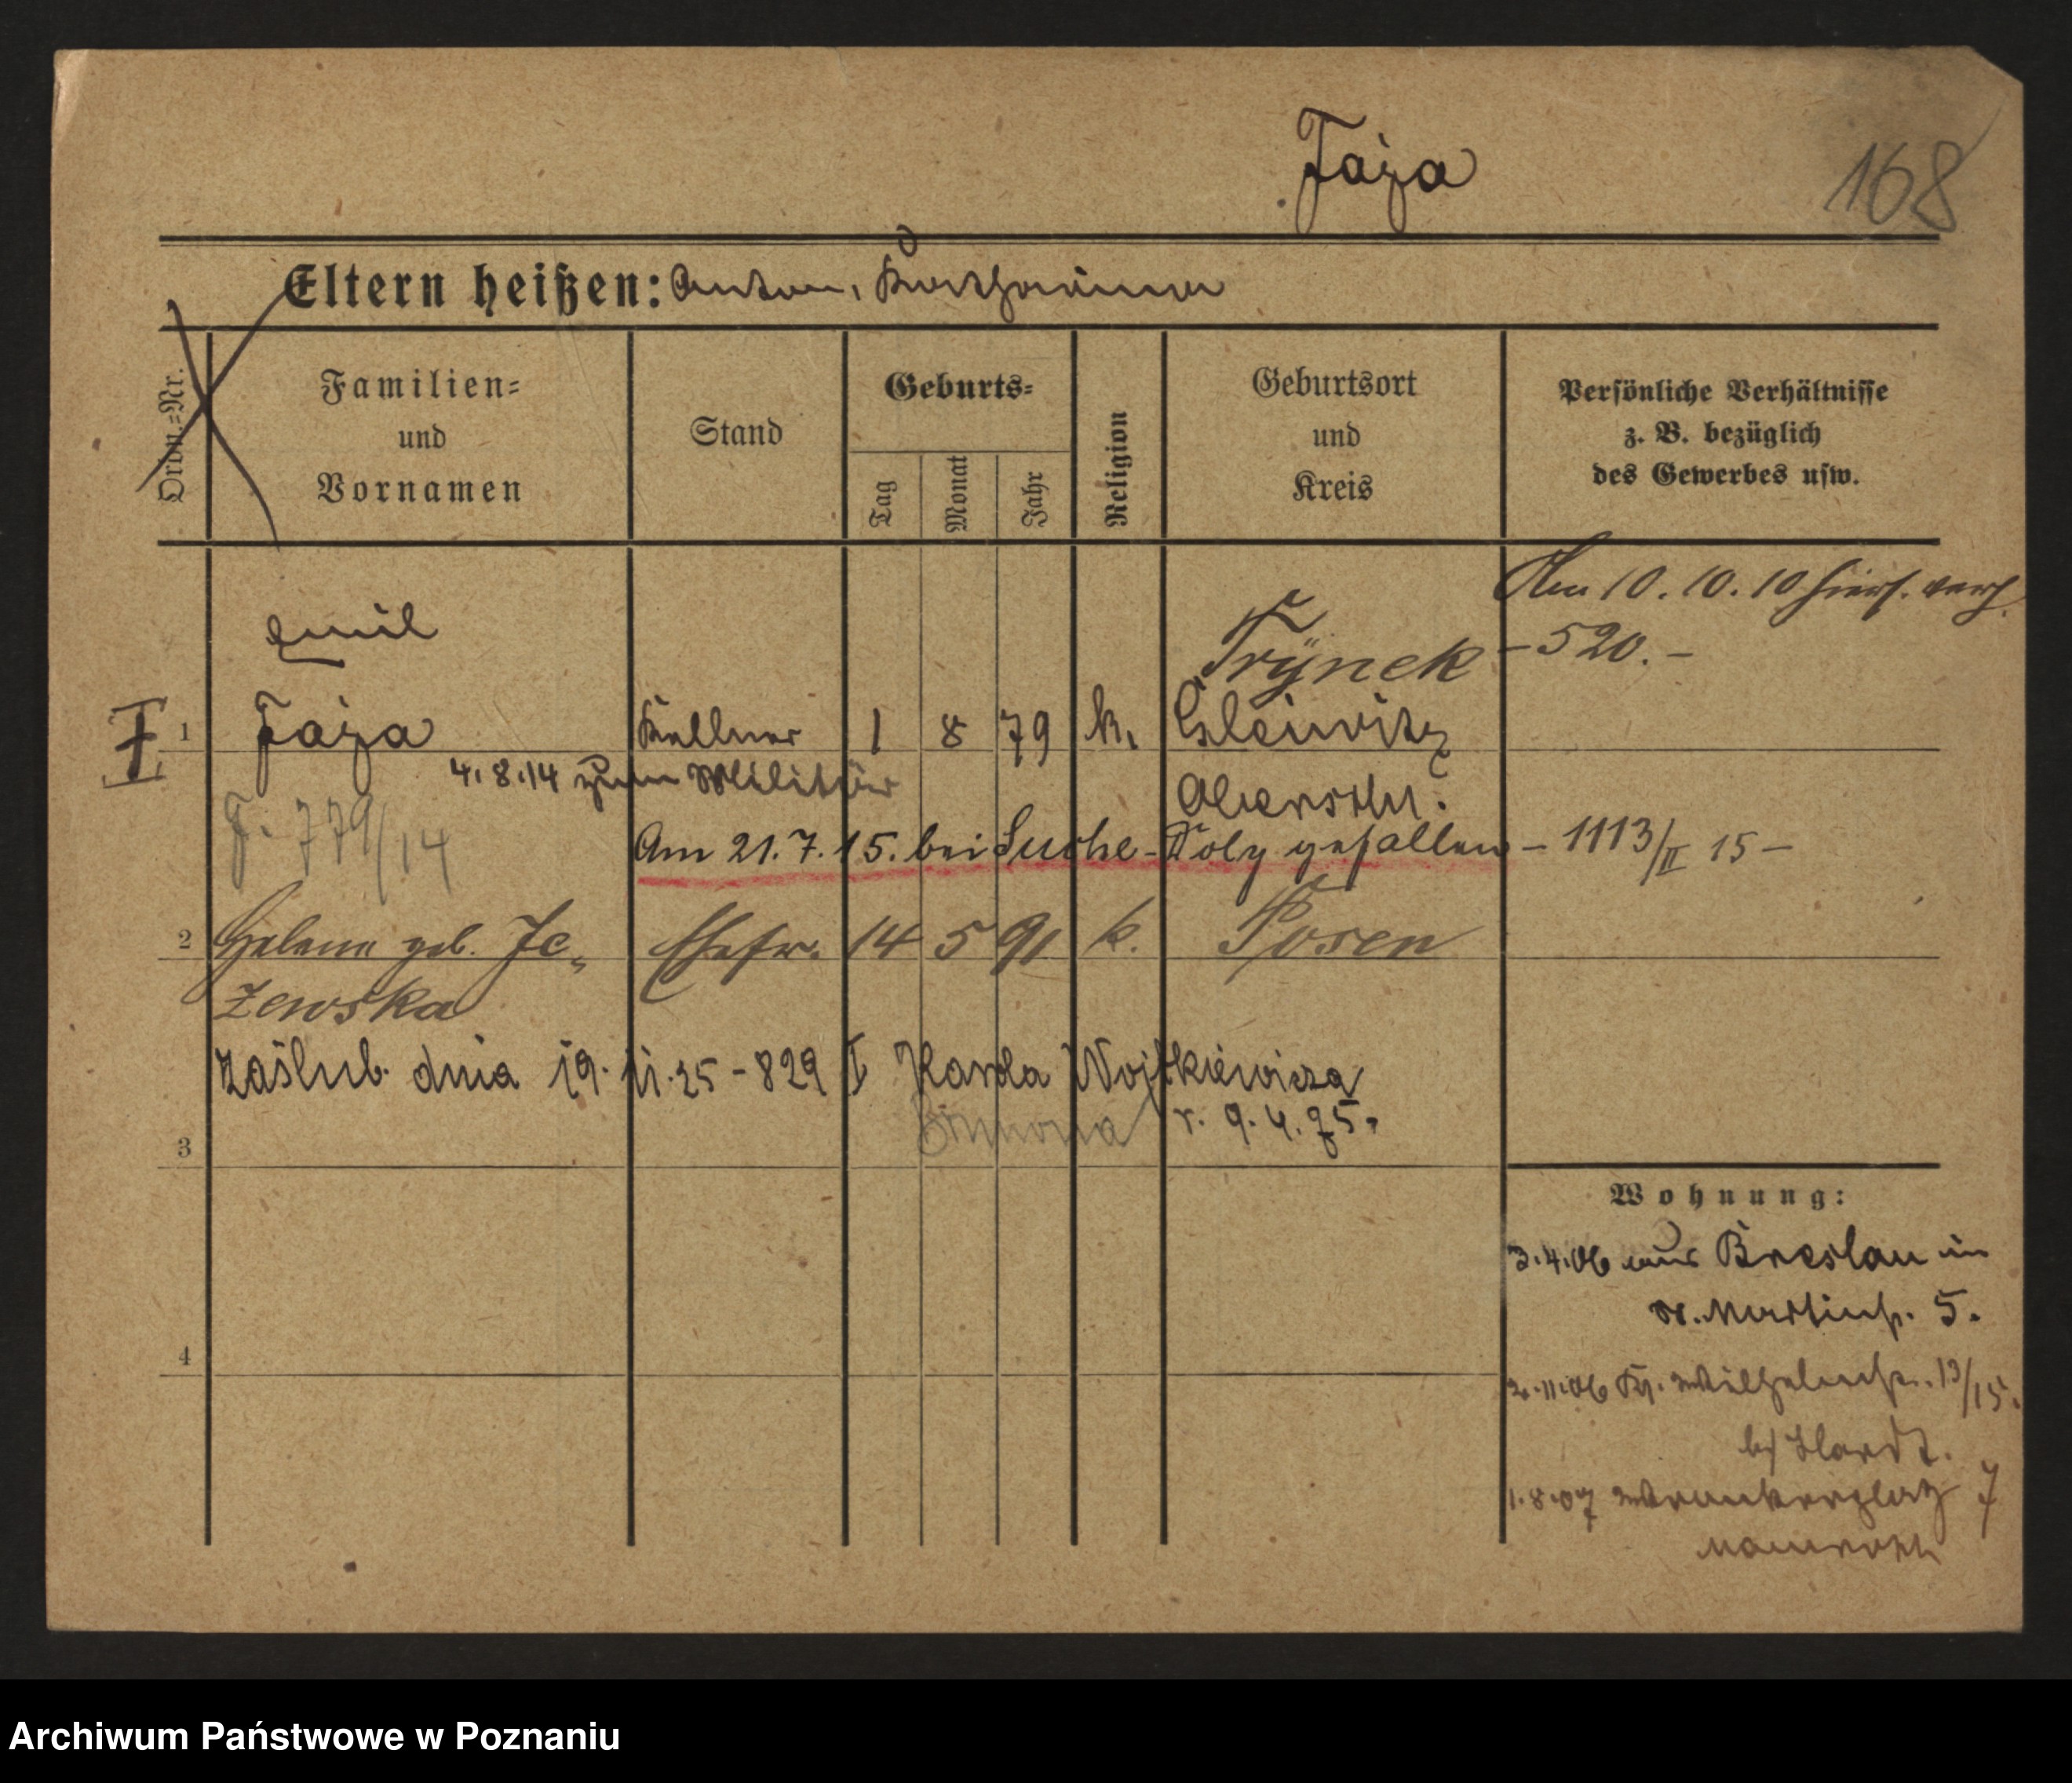 Faja
168
Eltern heißen: Anton, Katharina
Ordn.=Nr.
Familien=
und
Vornamen
Stand
Geburts=
Tag
Monat
Jahr
Religion
Geburtsort
und
Kreis
Persönliche Verhältnisse
z. B. bezüglich
des Gewerbes usw.
Am 10. 10. 10 hiers. verh.
- 520. -
Emil
Trÿnek
1 Faja Kellner 1 8 79 k. Gleiwitz
4.8.14 zum Militär
Oberschl.
F. 779/14
Am 21.7.15. bei Suche-Doly gefallen - 1113/II 15 -
2 Helene geb. Je- Ehefr. 14 5 91 k. Posen
zewska
zaślub. dnia 19. 11. 25 - 829 I Karola Wojtkiewicza
r. 9. 4. 75.
3
Wohnung:
3.4.06 aus Breslau in
St. Martinstr. 5.
4
2.11.06 Kl. Wilhelmstr. 13/15.
b/ Hardt.
1.8.07 7